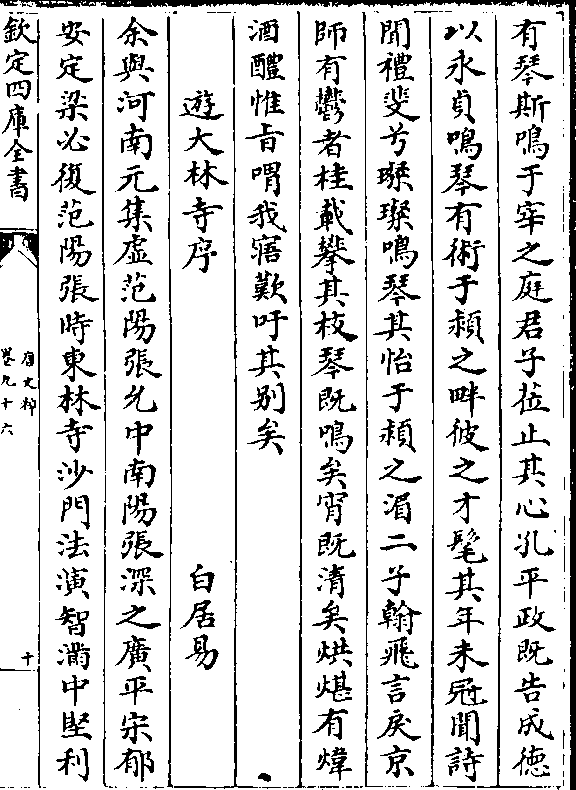 有琴斯鳴于宰之庭君子莅止其心孔平政既告成德
以永貞鳴琴有術于潁之畔彼之才髦其年未冠聞詩
聞禮斐兮璨璨鳴琴其怡于潁之湄二子翰飛言戾京
師有鬱者桂載攀其枝琴既鳴矣宵既清矣烘煁有煒
酒醴惟旨喟我寤歎吁其别矣
遊大林寺序
白居易
余與河南元集虛范陽張允中南陽張深之廣平宋郁
安定梁必復范陽張時東林寺沙門法演智滿中堅利
欽定四庫全書
唐文粹
卷九十六
十